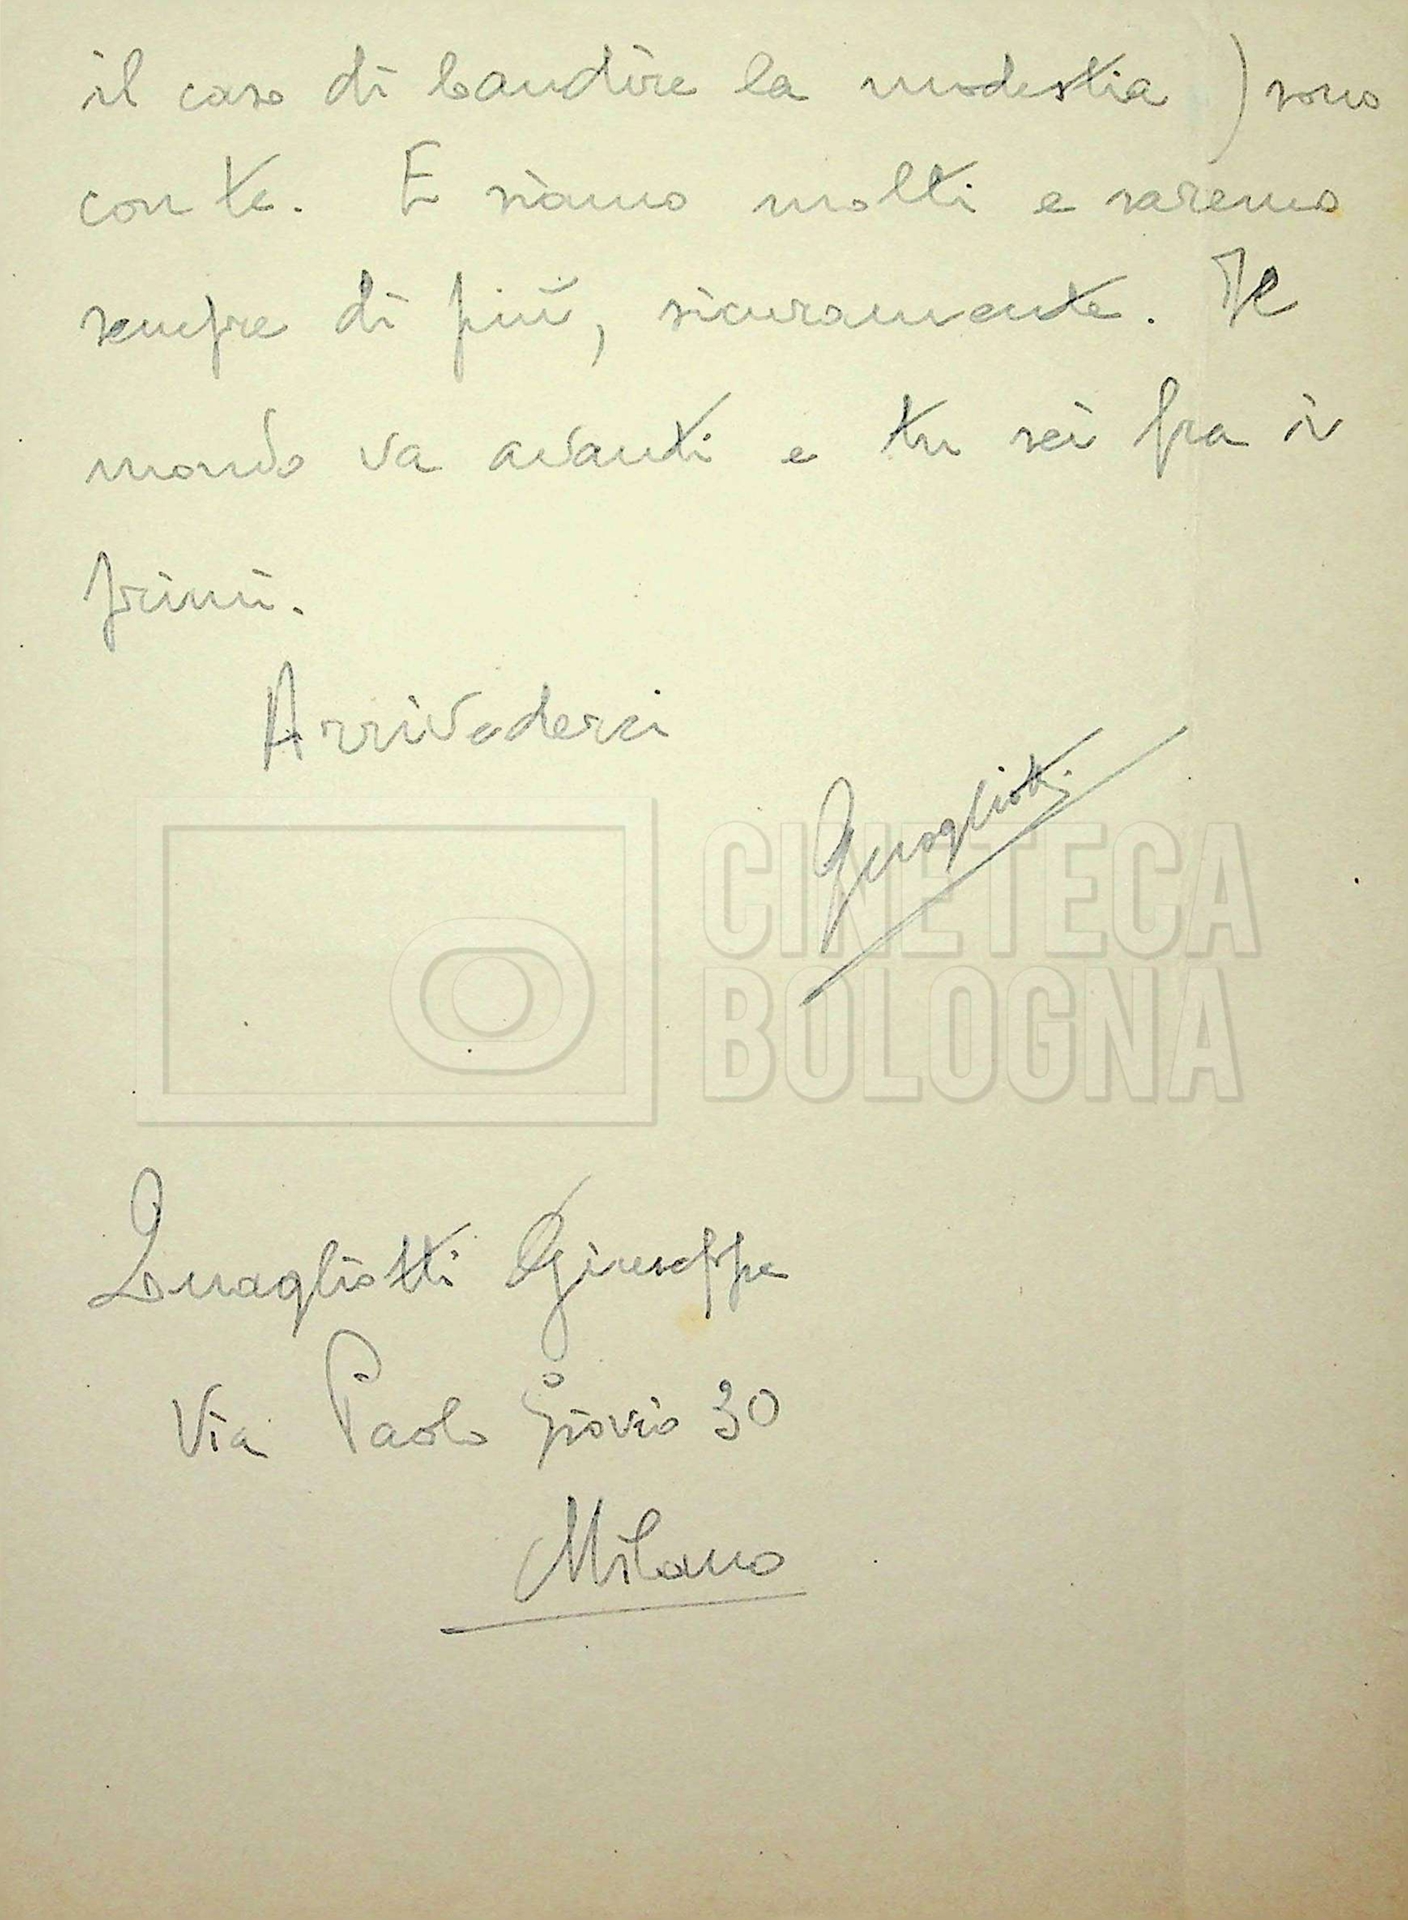 il caso di bandire la modestia ) sono
con te. E siamo molti e saremo
sempre di più, sicuramente. Il
mondo va avanti e tu sei fra i
primi.
Arrivederci
Quagliotti
CINETECA
BOLOGNA
Quagliotti Giuseppe
Via Paolo Giovio 30
Milano